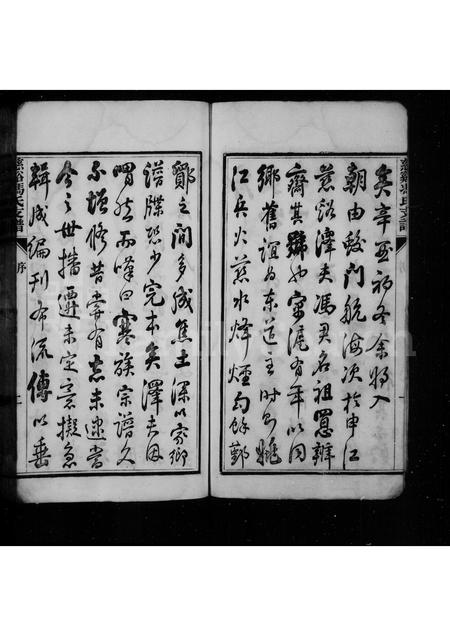 矣辛亥初冬余將入
朝由蛟門航海次於申江
慈谿澤夫馮君名祖恩辦
齋其號也寓滬有年以同
鄉舊誼為東道主時姚
江兵火慈水烽煙勾餘鄞
鄮之間多成焦土深以家鄉
譜牒恐少完本矣澤夫因
喟然而嘆曰寒族宗譜久
不增修昔嘗有志未逮當
今之世播遷未定意擬急
輯成編刊布流傳以垂
慈谿馮氏支譜
序
慈谿馮氏支譜
序